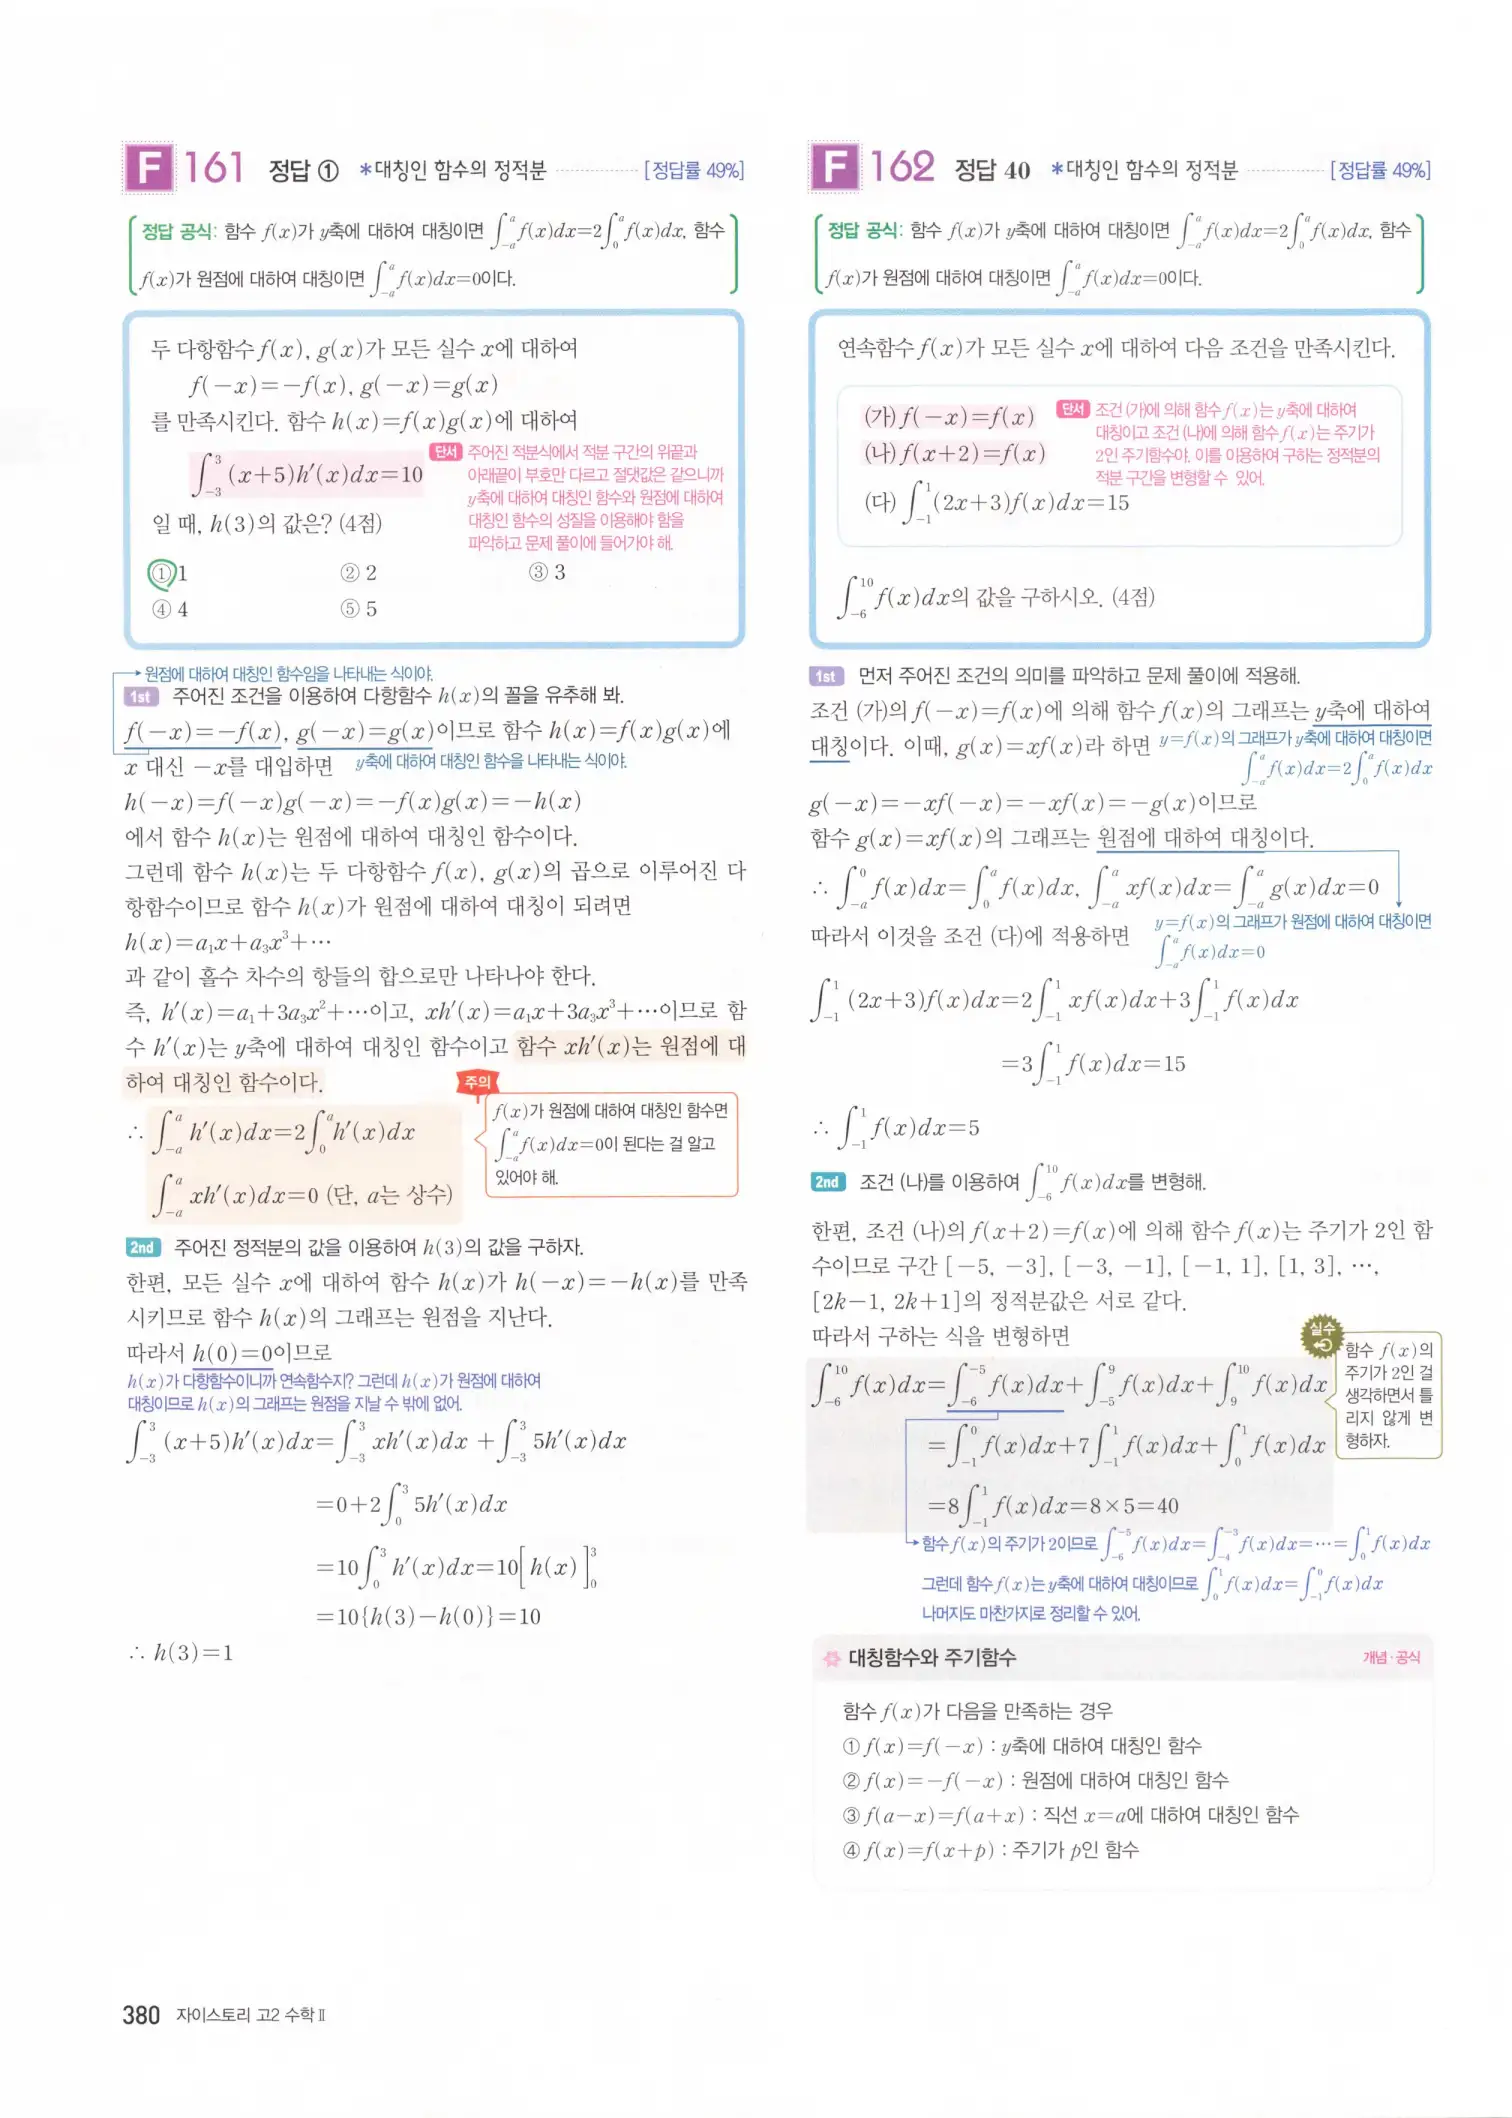 F 161 정답 ① *대칭인 함수의 정적분 [정답률 49%]
정답 공식: 함수 f(x)가 y축에 대하여 대칭이면 ∫_{-a}^{a} f(x)dx=2∫_{0}^{a} f(x)dx, 함수
f(x)가 원점에 대하여 대칭이면 ∫_{-a}^{a} f(x)dx=0이다.
두 다항함수 f(x), g(x)가 모든 실수 x에 대하여
f(-x)=-f(x), g(-x)=g(x)
를 만족시킨다. 함수 h(x)=f(x)g(x)에 대하여
∫_{-3}^{3} (x+5)h′(x)dx=10
단서 주어진 적분식에서 적분 구간의 위끝과
아래끝이 부호만 다르고 절댓값은 같으니까
y축에 대하여 대칭인 함수와 원점에 대하여
대칭인 함수의 성질을 이용해야 함을
파악하고 문제 풀이에 들어가야 해.
일 때, h(3)의 값은? (4점)
① 1 ② 2 ③ 3
④ 4 ⑤ 5
원점에 대하여 대칭인 함수임을 나타내는 식이야.
1st 주어진 조건을 이용하여 다항함수 h(x)의 꼴을 유추해 봐.
f(-x)=-f(x), g(-x)=g(x)이므로 함수 h(x)=f(x)g(x)에
x 대신 -x를 대입하면 y축에 대하여 대칭인 함수을 나타내는 식이야.
h(-x)=f(-x)g(-x)=-f(x)g(x)=-h(x)
에서 함수 h(x)는 원점에 대하여 대칭인 함수이다.
그런데 함수 h(x)는 두 다항함수 f(x), g(x)의 곱으로 이루어진 다
항함수이므로 함수 h(x)가 원점에 대하여 대칭이 되려면
h(x)=a₁x+a₃x³+⋯
과 같이 홀수 차수의 항들의 합으로만 나타나야 한다.
즉, h′(x)=a₁+3a₃x²+⋯이고, xh′(x)=a₁x+3a₃x³+⋯이므로 함
수 h′(x)는 y축에 대하여 대칭인 함수이고 함수 xh′(x)는 원점에 대
하여 대칭인 함수이다.
∴ ∫_{-a}^{a} h′(x)dx=2∫_{0}^{a} h′(x)dx
∫_{-a}^{a} xh′(x)dx=0 (단, a는 상수)
주의
f(x)가 원점에 대하여 대칭인 함수면
∫_{-a}^{a} f(x)dx=0이 된다는 걸 알고
있어야 해.
2nd 주어진 정적분의 값을 이용하여 h(3)의 값을 구하자.
한편, 모든 실수 x에 대하여 함수 h(x)가 h(-x)=-h(x)를 만족
시키므로 함수 h(x)의 그래프는 원점을 지난다.
따라서 h(0)=0이므로
h(x)가 다항함수이니까 연속함수지? 그런데 h(x)가 원점에 대하여
대칭이므로 h(x)의 그래프는 원점을 지날 수 밖에 없어.
∫_{-3}^{3} (x+5)h′(x)dx=∫_{-3}^{3} xh′(x)dx +∫_{-3}^{3} 5h′(x)dx
=0+2∫_{0}^{3} 5h′(x)dx
=10∫_{0}^{3} h′(x)dx=10[h(x)]_{0}^{3}
=10{h(3)-h(0)}=10
∴ h(3)=1
F 162 정답 40 *대칭인 함수의 정적분 [정답률 49%]
정답 공식: 함수 f(x)가 y축에 대하여 대칭이면 ∫_{-a}^{a} f(x)dx=2∫_{0}^{a} f(x)dx, 함수
f(x)가 원점에 대하여 대칭이면 ∫_{-a}^{a} f(x)dx=0이다.
연속함수 f(x)가 모든 실수 x에 대하여 다음 조건을 만족시킨다.
(가) f(-x)=f(x)
(나) f(x+2)=f(x)
단서 조건 (가)에 의해 함수 f(x)는 y축에 대하여
대칭이고 조건 (나)에 의해 함수 f(x)는 주기가
2인 주기함수야. 이를 이용하여 구하는 정적분의
적분 구간을 변형할 수 있어.
(다) ∫_{-1}^{1} (2x+3)f(x)dx=15
∫_{-6}^{10} f(x)dx의 값을 구하시오. (4점)
1st 먼저 주어진 조건의 의미를 파악하고 문제 풀이에 적용해.
조건 (가)의 f(-x)=f(x)에 의해 함수 f(x)의 그래프는 y축에 대하여
대칭이다. 이때, g(x)=xf(x)라 하면 y=f(x)의 그래프가 y축에 대하여 대칭이면
∫_{-a}^{a} f(x)dx=2∫_{0}^{a} f(x)dx
g(-x)=-xf(-x)=-xf(x)=-g(x)이므로
함수 g(x)=xf(x)의 그래프는 원점에 대하여 대칭이다.
∴ ∫_{-a}^{0} f(x)dx=∫_{0}^{a} f(x)dx, ∫_{-a}^{a} xf(x)dx=∫_{-a}^{a} g(x)dx=0
따라서 이것을 조건 (다)에 적용하면 y=f(x)의 그래프가 원점에 대하여 대칭이면
∫_{-a}^{a} f(x)dx=0
∫_{-1}^{1} (2x+3)f(x)dx=2∫_{-1}^{1} xf(x)dx+3∫_{-1}^{1} f(x)dx
=3∫_{-1}^{1} f(x)dx=15
∴ ∫_{-1}^{1} f(x)dx=5
2nd 조건 (나)를 이용하여 ∫_{-6}^{10} f(x)dx를 변형해.
한편, 조건 (나)의 f(x+2)=f(x)에 의해 함수 f(x)는 주기가 2인 함
수이므로 구간 [-5, -3], [-3, -1], [-1, 1], [1, 3], ⋯,
[2k-1, 2k+1]의 정적분값은 서로 같다.
따라서 구하는 식을 변형하면
∫_{-6}^{10} f(x)dx=∫_{-6}^{-5} f(x)dx+∫_{-5}^{9} f(x)dx+∫_{9}^{10} f(x)dx
=∫_{-1}^{0} f(x)dx+7∫_{-1}^{1} f(x)dx+∫_{0}^{1} f(x)dx
=8∫_{-1}^{1} f(x)dx=8×5=40
실수
함수 f(x)의
주기가 2인 걸
생각하면서 틀
리지 않게 변
형하자.
함수 f(x)의 주기가 2이므로 ∫_{-6}^{-5} f(x)dx=∫_{-4}^{-3} f(x)dx=⋯=∫_{0}^{1} f(x)dx
그런데 함수 f(x)는 y축에 대하여 대칭이므로 ∫_{0}^{1} f(x)dx=∫_{-1}^{0} f(x)dx
나머지도 마찬가지로 정리할 수 있어.
대칭함수와 주기함수 개념·공식
함수 f(x)가 다음을 만족하는 경우
① f(x)=f(-x) : y축에 대하여 대칭인 함수
② f(x)=-f(-x) : 원점에 대하여 대칭인 함수
③ f(a-x)=f(a+x) : 직선 x=a에 대하여 대칭인 함수
④ f(x)=f(x+p) : 주기가 p인 함수
380 자이스토리 고2 수학Ⅱ